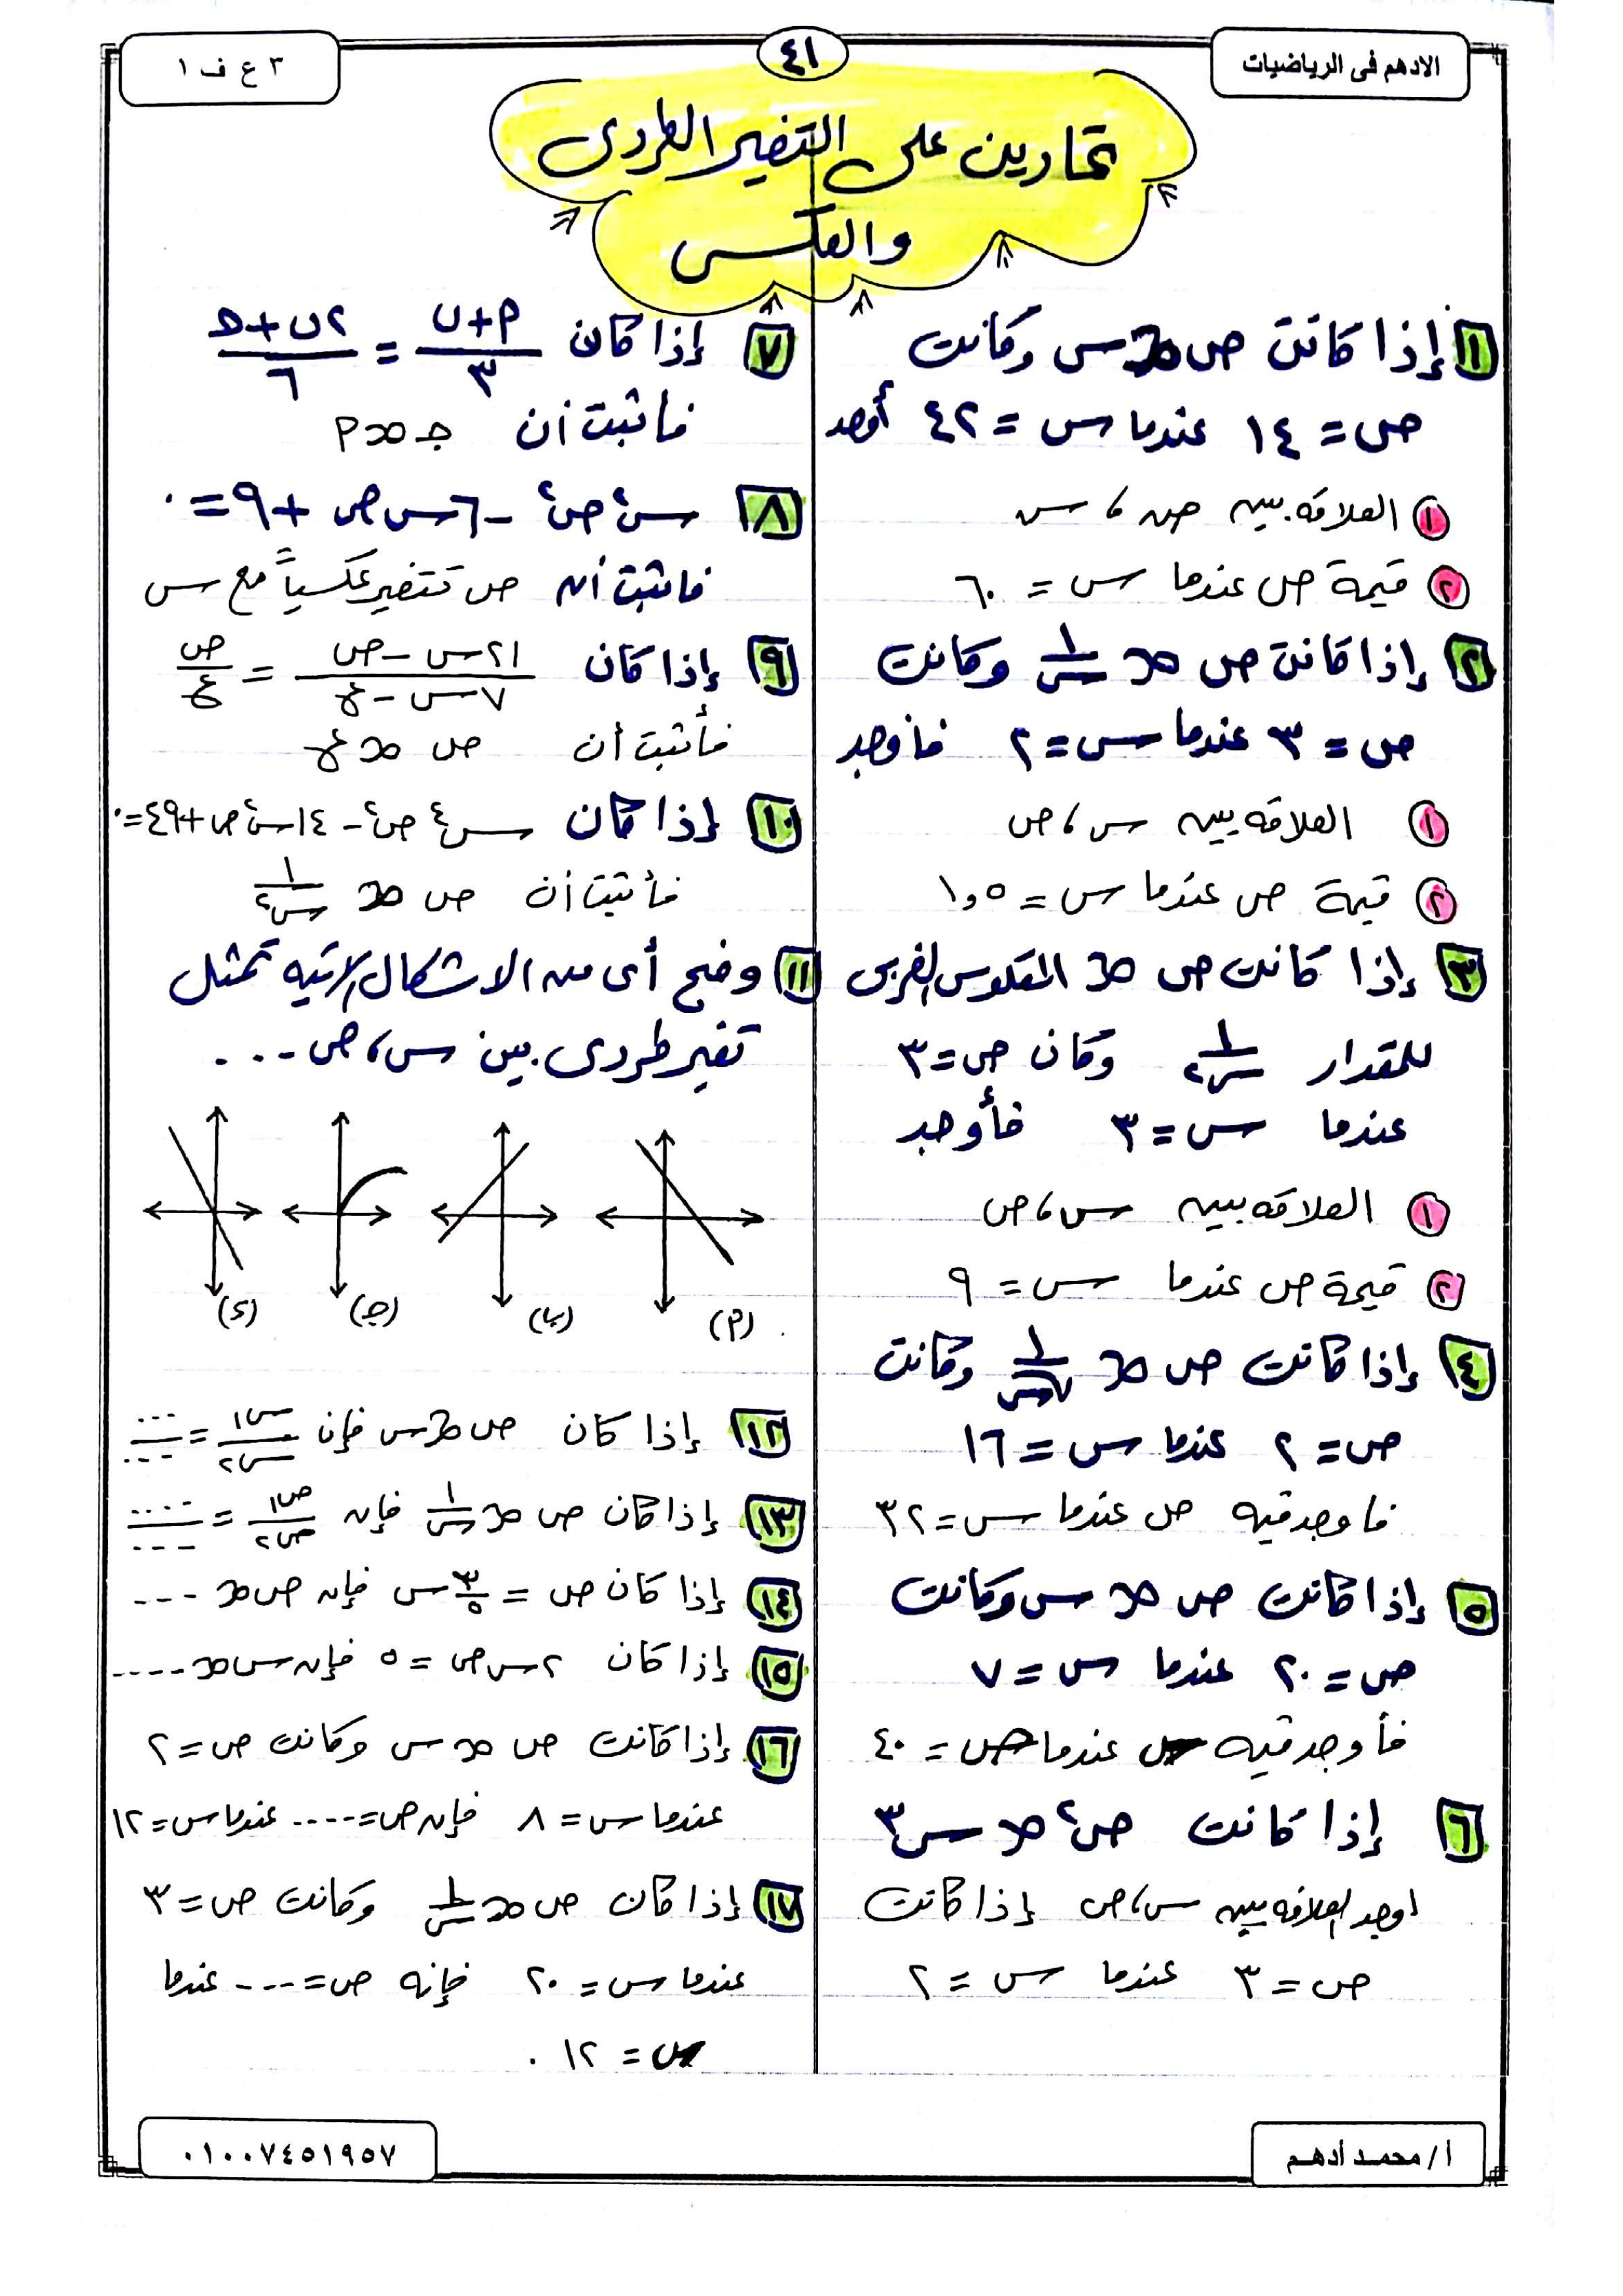 الادهم فى الرياضيات
٤١
٣ ع ف ١
تمارين على التغير الطردى
والعكسى
١ إذا كانت ص ∝ س وكانت
ص = ١٤ عندما س = ٤٢ أوجد
١ العلاقه بين ص ، س
٢ قيمة ص عندما س = ٦٠
٢ إذا كانت ص ∝ ١/س وكانت
ص = ٣ عندما س = ٢ فأوجد
١ العلاقه بين س ، ص
٢ قيمة ص عندما س = ١,٥
٣ إذا كانت ص ∝ المعكوس الضربى
للمقدار ١/س٢ وكان ص = ٣
عندما س = ٣ فأوجد
١ العلاقه بين س ، ص
٢ قيمة ص عندما س = ٩
٤ إذا كانت ص ∝ ١/√س وكانت
ص = ٢ عندما س = ١٦
فاوجد قيمه ص عندما س = ٣٢
٥ إذا كانت ص ∝ س وكانت
ص = ٢٠ عندما س = ٧
فأوجد قيمه س عندما ص = ٤٠
٦ إذا كانت ص² ∝ س³
اوجد العلاقه بين س ، ص إذا كانت
ص = ٣ عندما س = ٢
٧ إذا كان (٢ + ب)/٣ = (٢ب + ج)/٦
فأثبت أن ج ∝ ٢
٨ س² ص² - ٦ س ص + ٩ = ٠
فاثبت أن ص تتغير عكسياً مع س
٩ إذا كان (٢١ س - ص)/(٧ س - ع) = ص/ع
فأثبت أن ص ∝ ع
١٠ إذا كان س⁴ ص² - ١٤ س² ص + ٤٩ = ٠
فأثبت أن ص ∝ ١/س٢
١١ وضح أى من الاشكال الاتيه تمثل
تغير طردى بين س ، ص ...
(٢) (ب) (ج) (د)
١٢ إذا كان ص ∝ س فإن س١/س٢ = .../...
١٣ إذا كان ص ∝ ١/س فإن ص١/ص٢ = ..../...
١٤ إذا كان ص = ٣/٥ س فإن ص ∝ ...
١٥ إذا كان ٢ س ص = ٥ فإن س ∝ ....
١٦ إذا كانت ص ∝ س وكانت ص = ٢
عندما س = ٨ فإن ص = .... عندما س = ١٢
١٧ إذا كان ص ∝ ١/س وكانت ص = ٣
عندما س = ٢٠ فإنه ص = ... عندما
س = ١٢ .
أ / محمد أدهم
٠١٠٠٧٤٥١٩٥٧